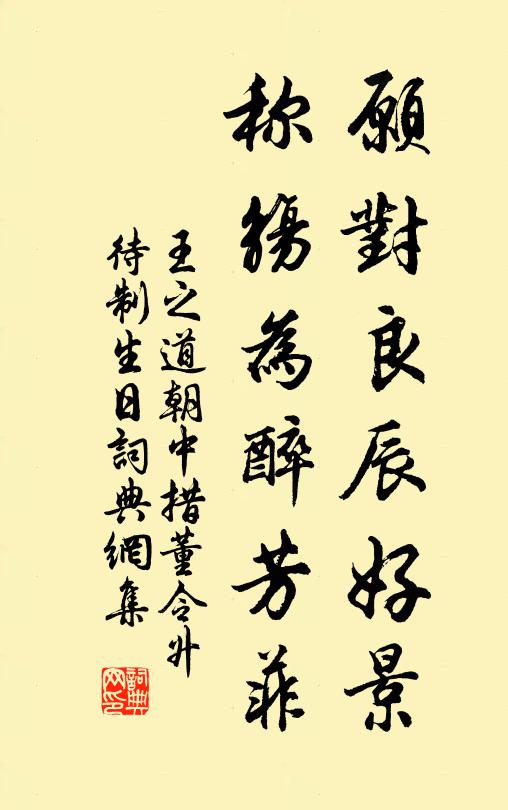 願對良辰好景
称觴為醉芳菲
王之道朝中措董令升
待制生日詞典網集
詞典
网印